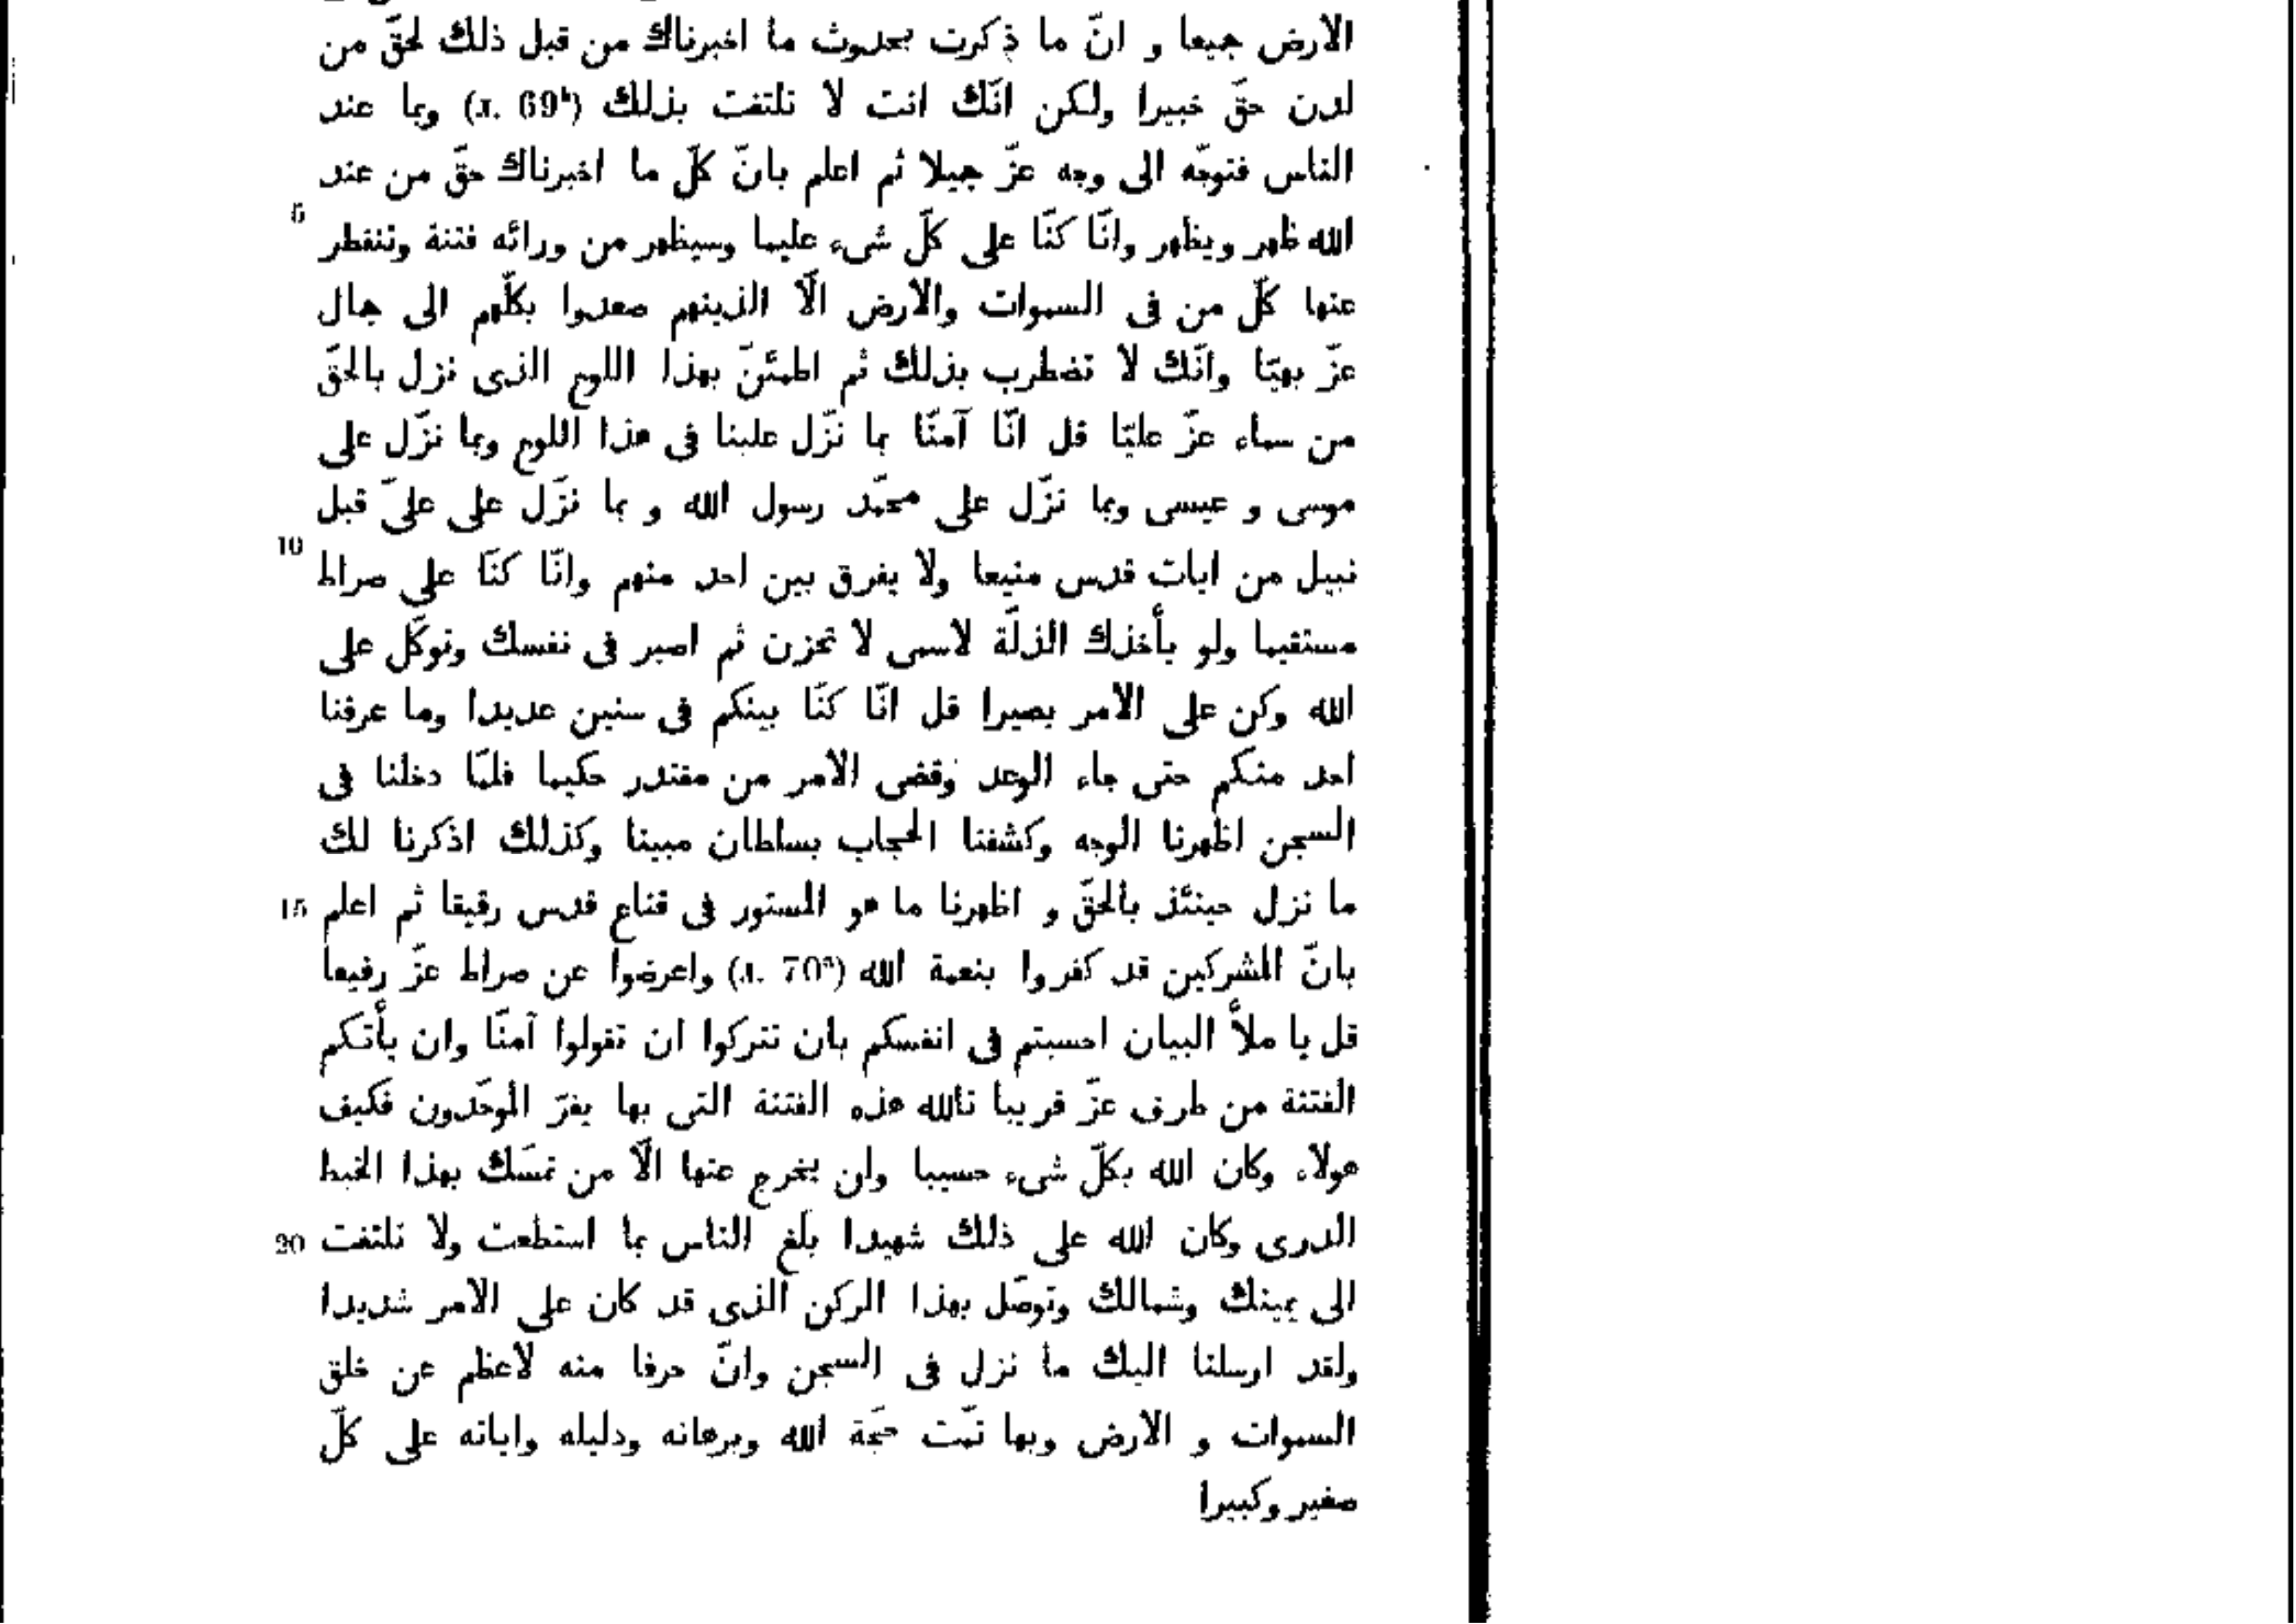 الارض جميعا و انّ ما ذكرت بحدوث ما اخبرناك من قبل ذلك لحقّ من
لدن حقّ خبيرا ولكن انّك انت لا تلتفت بذلك (л. 69ᵇ) وبما عند
الناس فتوجّه الى وجه عزّ جميلا ثم اعلم بانّ كلّ ما اخبرناك حقّ من عند
5
الله ظهر ويظهر وانّا كنّا على كلّ شىء عليما وسيظهر من ورائه فتنة وتنفطر
عنها كلّ من فى السموات والارض الّا الذينهم صعدوا بكلّهم الى جمال
عزّ بهيّا وانّك لا تضطرب بذلك ثم اطمئنّ بهذا اللوح الذى نزل بالحقّ
من سماء عزّ عليّا قل انّا آمنّا بما نزّل علينا فى هذا اللوح وبما نزّل على
موسى و عيسى وبما نزّل على محمّد رسول الله و بما نزّل على علىّ قبل
10
نبيل من ايات قدس منيعا ولا يفرق بين احد منهم وانّا كنّا على صراط
مستقيما ولو يأخذك الذلّة لاسمى لا تحزن ثم اصبر فى نفسك وتوكّل على
الله وكن على الامر بصيرا قل انّا كنّا بينكم فى سنين عديدا وما عرفنا
احد منكم حتى جاء الوعد وقضى الامر من مقتدر حكيما فلمّا دخلنا فى
السجن اظهرنا الوجه وكشفنا الحجاب بسلطان مبينا وكذلك اذكرنا لك
15 ما نزل حينئذ بالحقّ و اظهرنا ما هو المستور فى قناع قدس رقيقا ثم اعلم
بانّ المشركين قد كفروا بنعمة الله (л. 70ᵃ) واعرضوا عن صراط عزّ رفيعا
قل يا ملأ البيان احسبتم فى انفسكم بان تتركوا ان تقولوا آمنّا وان يأتكم
الفتنة من طرف عزّ قريبا تالله هذه الفتنة التى بها يفرّ الموحّدون فكيف
هولاء وكان الله بكلّ شىء حسيبا ولن يخرج عنها الّا من تمسّك بهذا الخيط
20 الدرى وكان الله على ذلك شهيدا بلّغ الناس بما استطعت ولا تلتفت
الى يمينك وشمالك وتوصّل بهذا الركن الذى قد كان على الامر شديدا
ولقد ارسلنا اليك ما نزل فى السجن وانّ حرفا منه لاعظم عن خلق
السموات و الارض وبها تمّت حجّة الله وبرهانه ودليله واياته على كلّ
صغير وكبيرا